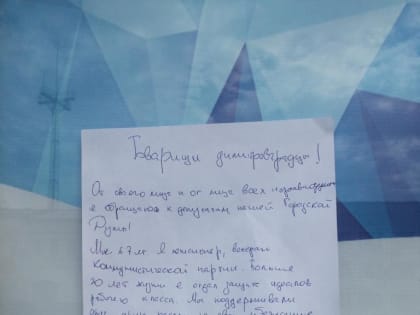 Товарищи димитровградцы!
От своего лица и от лица всех
я обращаюсь к депутатам нашей Городской
Думы!
Мне 67 лет я пенсионер, ветеран
Коммунистической партии. Больше
30 лет жизни я отдал защите идеалов
рабочего класса. Мы поддерживали